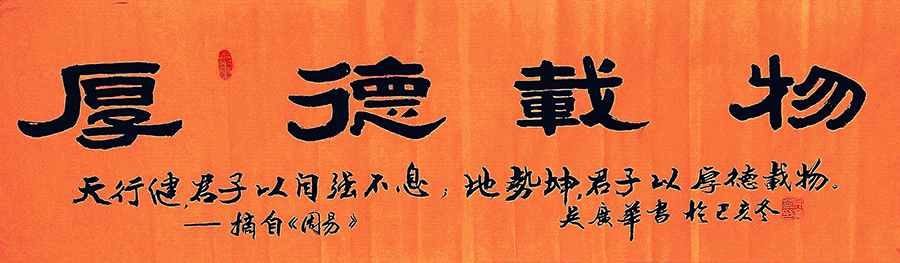 厚德載物
天行健,君子以自强不息;地勢坤,君子以厚德載物。
——摘自《周易》
吴廣華書於己亥冬